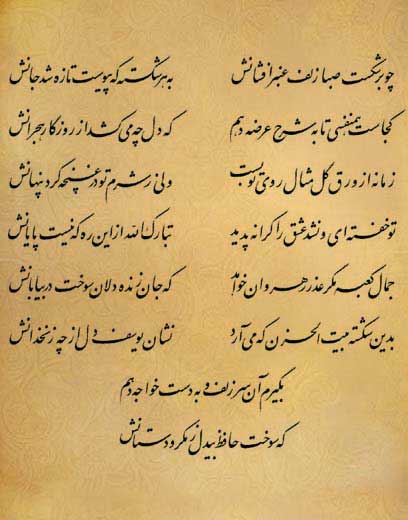 چو برشکست صبا زلف عنبرافشانش به هر شکسته که پیوست تازه شد جانش
کجاست همنفسی تا به شرح عرضه دهم که دل چه می‌کشد از روزگار هجرانش
زمانه از ورق گل مثال روی تو بست ولی ز شرم تو در غنچه کرد پنهانش
تو خفته‌ای و نشد عشق را کرانه پدید تبارک الله از این ره که نیست پایانش
جمال کعبه مگر عذر رهروان خواهد که جان زنده دلان سوخت در بیابانش
بدین شکسته بیت الحزن که می‌آرد نشان یوسف دل از چه زنخدانش
بگیرم آن سر زلف و به دست خواجه دهم
که سوخت حافظ بیدل ز مکر و دستانش